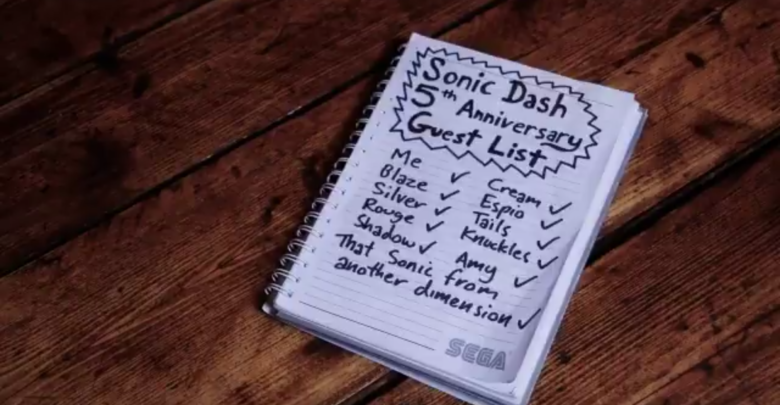 Sonic Dash
5th Anniversary
Guest List
Me ✓
Blaze ✓
Silver ✓
Rouge ✓
Shadow ✓
Cream ✓
Espio ✓
Tails ✓
Knuckles ✓
Amy ✓
That Sonic from
another dimension ✓
SEGA